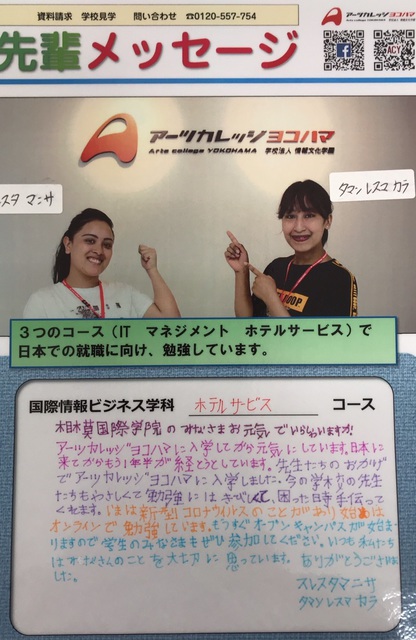 資料請求 学校見学 問い合わせ ☎0120-557-754
アーツカレッジヨコハマ
先輩メッセージ
ACY
アーツカレッジヨコハマ
Arts college YOKOHAMA 学校法人 情報文化学園
スタ マニサ
タマン レスマ カラ
3つのコース（IT マネジメント ホテルサービス）で
日本での就職に向け、勉強しています。
国際情報ビジネス学科 ホテルサービス コース
相模国際学院のみなさまお元気でいらっしゃいますか?
アーツカレッジヨコハマに入学してから元気にしています。日本に
来てからもう1年半が経とうとしています。先生たちのおかげ
でアーツカレッジヨコハマに入学しました。今の学校の先生
たちもやさしくて勉強には きびしくて、困った時手伝って
くれます。いまは新型コロナウィルスのことがあり 始めは
オンラインで勉強しています。もうすぐオープンキャンパスが始ま
りますので学生のみなさまもぜひ参加してください。いつも私たち
はみなさんのことを大切に思っています。ありがとうございま
した。
スレスタマニサ
タマンレスマ カラ